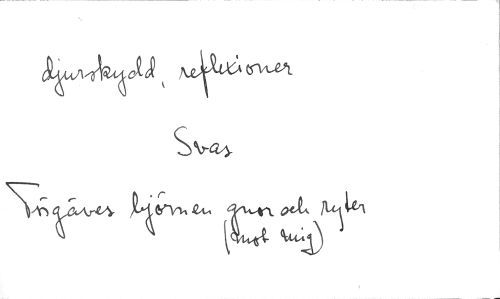 djurskydd, reflexioner
Svas
Fögäves björnen gnor och ryter
(mot mig)